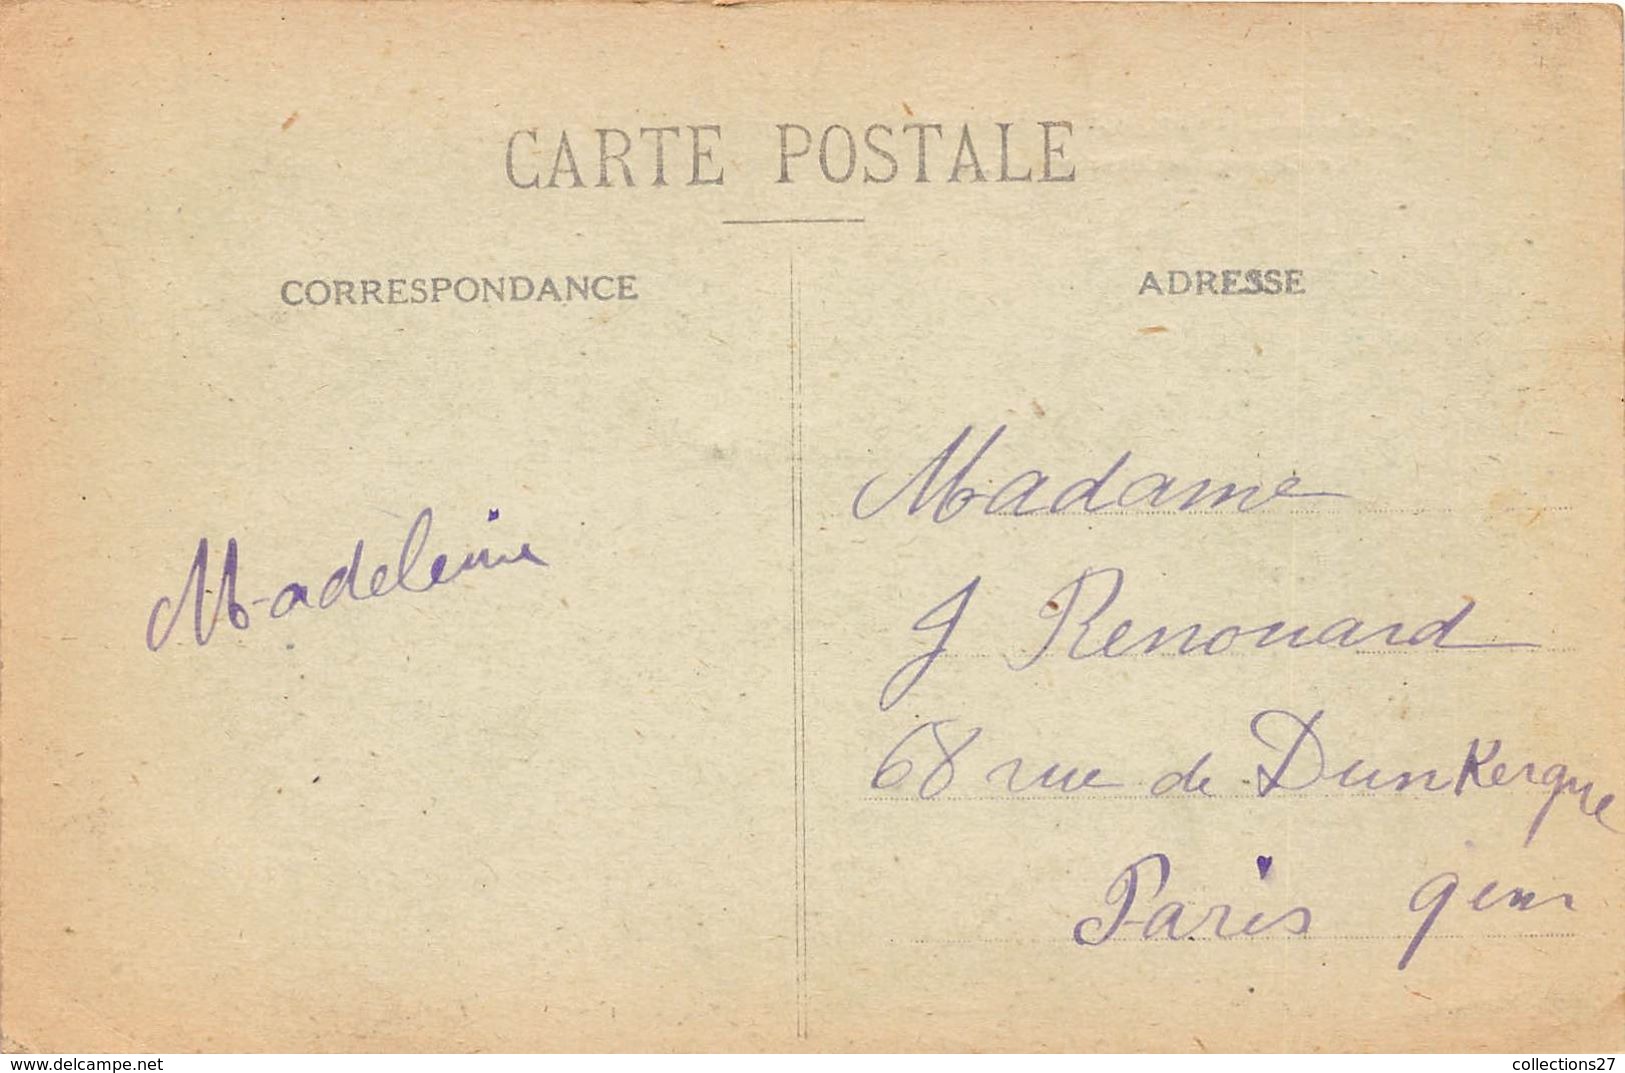 CARTE POSTALE
CORRESPONDANCE
ADRESSE
Madeleine
Madame
J Renouard
68 rue de Dunkerque
Paris 9em
www.delcampe.net
collections27